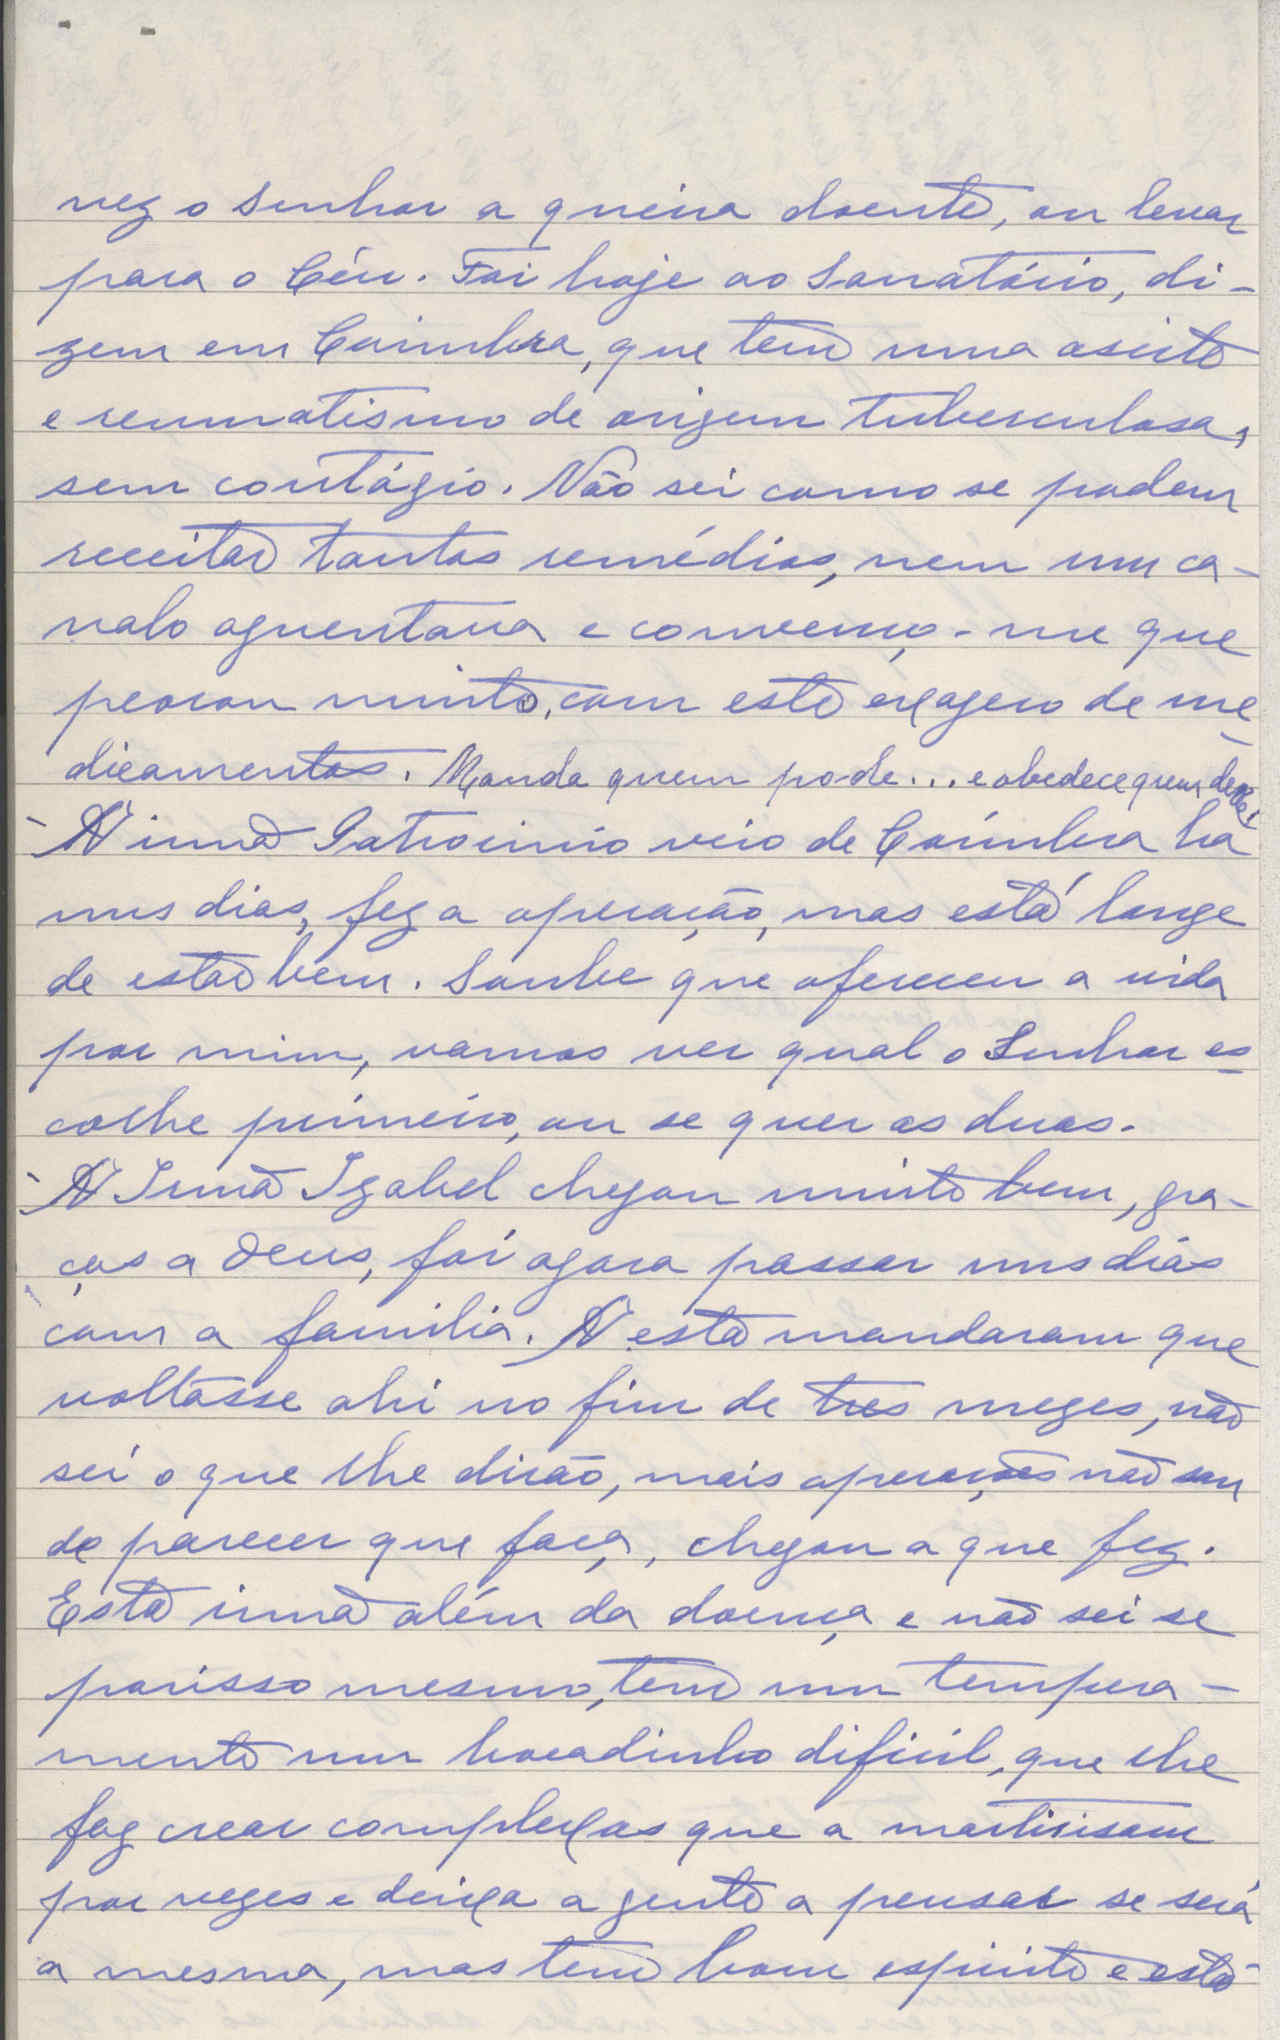 vez o Senhor a queira doente, ou levar
para o Céu. Foi hoje ao Sanatório, di-
zem em Coimbra, que tem uma ascite
e reumatismo de origem tuberculosa,
sem contágio. Não sei como se podem
receitar tantos remédios, nem um ca-
valo aguentava e convenço-me que
peorou muito, com este exagero de me
dicamentos. Manda quem pode... e obedece quem deve.
A irmã Patrocinio veio de Coimbra há
uns dias, fez a operação, mas está longe
de estar bem. Soube que ofereceu a vida
por mim, vamos ver qual o Senhor es
colhe primeiro, ou se quer as duas.
A Irmã Izabel chegou muito bem, gra-
ças a Deus, foi agora passar uns dias
com a familia. A esta mandaram que
voltásse ahi no fim de tres mezes, não
sei o que lhe dirão, mais operações não sou
de parecer que faça, chegou a que fez.
Esta irmã além da doença e não sei se
porisso mesmo, tem um tempera-
mento um bocadinho dificil, que lhe
faz crear complexos que a martirisam
por vezes e deixa a gente a pensar se será
a mesma, mas tem bom espirito e está